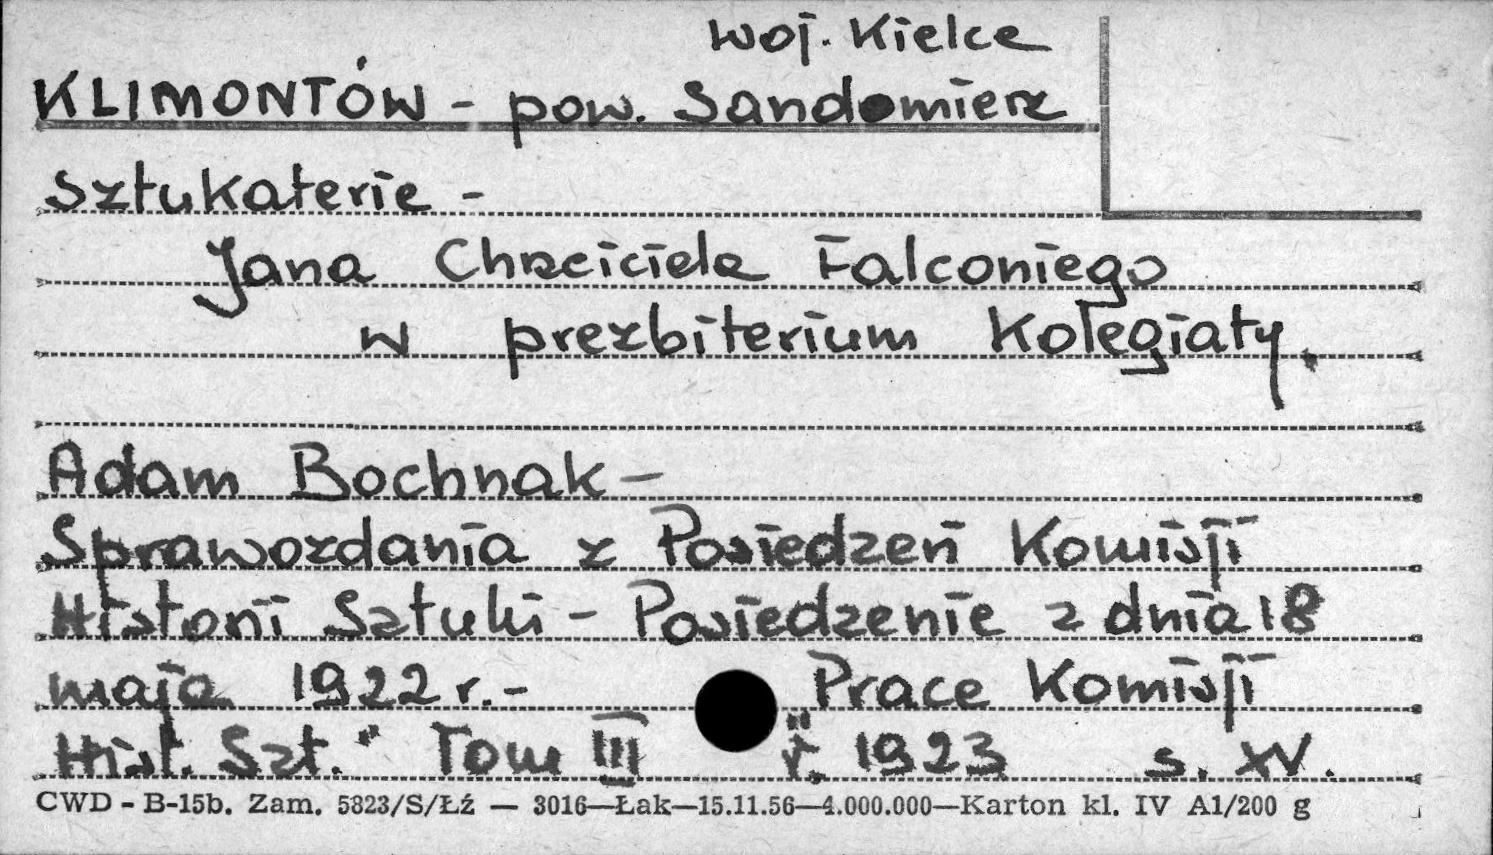 woj. Kielce
KLIMONTÓW - pow. Sandomierz
Sztukaterie -
Jana Chrzciciela Falconiego
w prezbiterium Kolegiaty.
Adam Bochnak -
Sprawozdania z Posiedzeń Komisji
Historii Sztuki - Posiedzenie z dnia 18
maja 1922 r. - "Prace Komisji
Hist. Szt." Tom III r. 1923 s. XV.
CWD - B-15b. Zam. 5823/S/Łź — 3016—Łak—15.11.56—4.000.000—Karton kl. IV A1/200 g